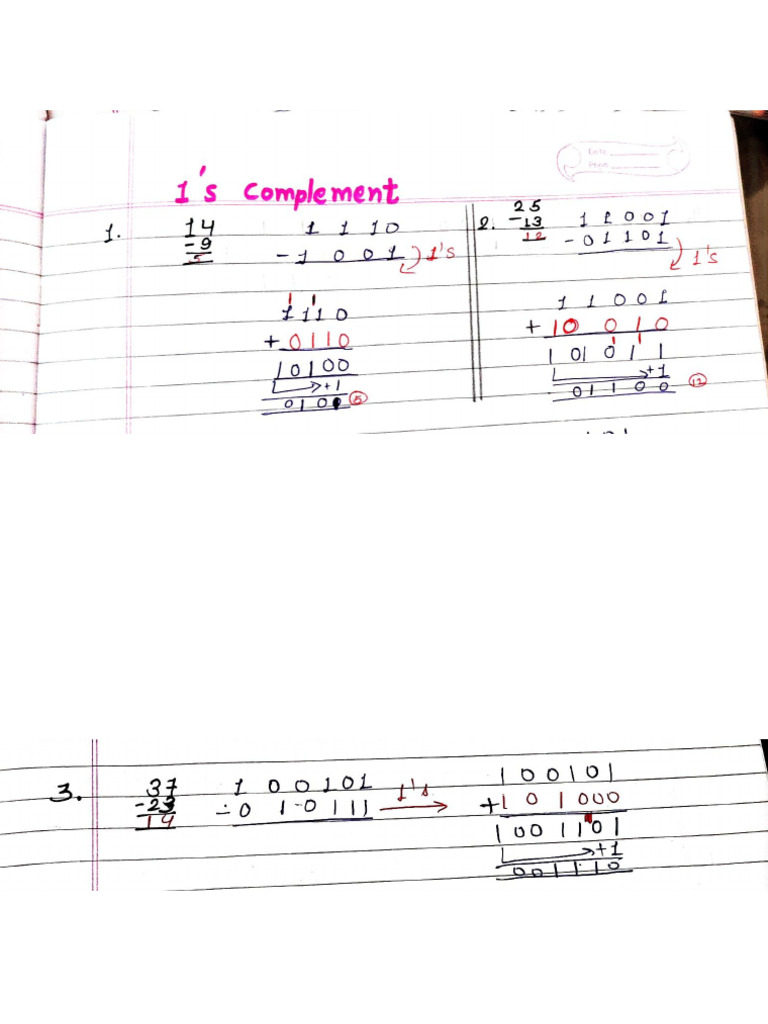 1's Complement
1. 14 1 1 1 0
-9 -1 0 0 1 1's
5
1 1
1 1 1 0
+0 1 1 0
1 0 1 0 0
+1
0 1 0 1 5
2. 25 1 1 0 0 1
-13 -0 1 1 0 1 1's
12
1 1 0 0 1
+1 0 0 1 0
1 0 1 0 1 1
+1
0 1 1 0 0 12
3. 37 1 0 0 1 0 1
-23 -0 1 0 1 1 1 1's
14
1 0 0 1 0 1
+1 0 1 0 0 0
1 0 0 1 1 0 1
+1
0 0 1 1 1 0